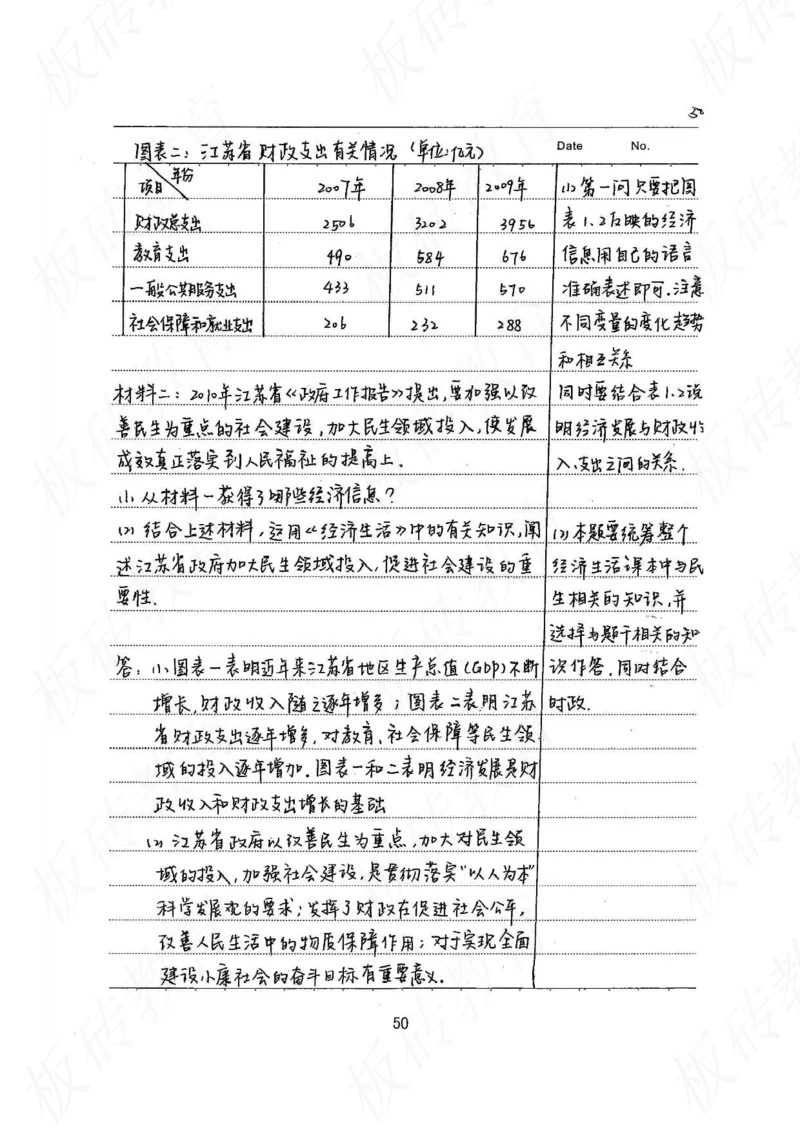 50
Date No.
图表二：江苏省财政支出有关情况（单位:亿元）
年份
项目 2007年 2008年 2009年
财政总支出 2506 3202 3956
教育支出 490 584 676
一般公共服务支出 433 511 570
社会保障和就业支出 206 232 288
材料二：2010年江苏省《政府工作报告》提出，要加强以改
善民生为重点的社会建设，加大民生领域投入，使发展
成效真正落实到人民福祉的提高上．
(1) 从材料一获得了哪些经济信息？
(2) 结合上述材料，运用《经济生活》中的有关知识，阐
述江苏省政府加大民生领域投入，促进社会建设的重
要性．
答：(1) 图表一表明近年来江苏省地区生产总值（GDP）不断
增长，财政收入随之逐年增多；图表二表明江苏
省财政支出逐年增多，对教育、社会保障等民生领
域的投入逐年增加．图表一和二表明经济发展是财
政收入和财政支出增长的基础
(2) 江苏省政府以改善民生为重点，加大对民生领
域的投入，加强社会建设，是贯彻落实“以人为本”
科学发展观的要求；发挥了财政在促进社会公平，
改善人民生活中的物质保障作用；对于实现全面
建设小康社会的奋斗目标有重要意义．
(1) 第一问只要把图
表1.2反映的经济
信息用自己的语言
准确表述即可．注意
不同变量的变化趋势
和相互关系
同时要结合表1.2说
明经济发展与财政收
入、支出之间的关系．
(2) 本题要统筹整个
经济生活课本中与民
生相关的知识，并
选择与题干相关的知
识作答．同时结合
时政．
50
板砖教育